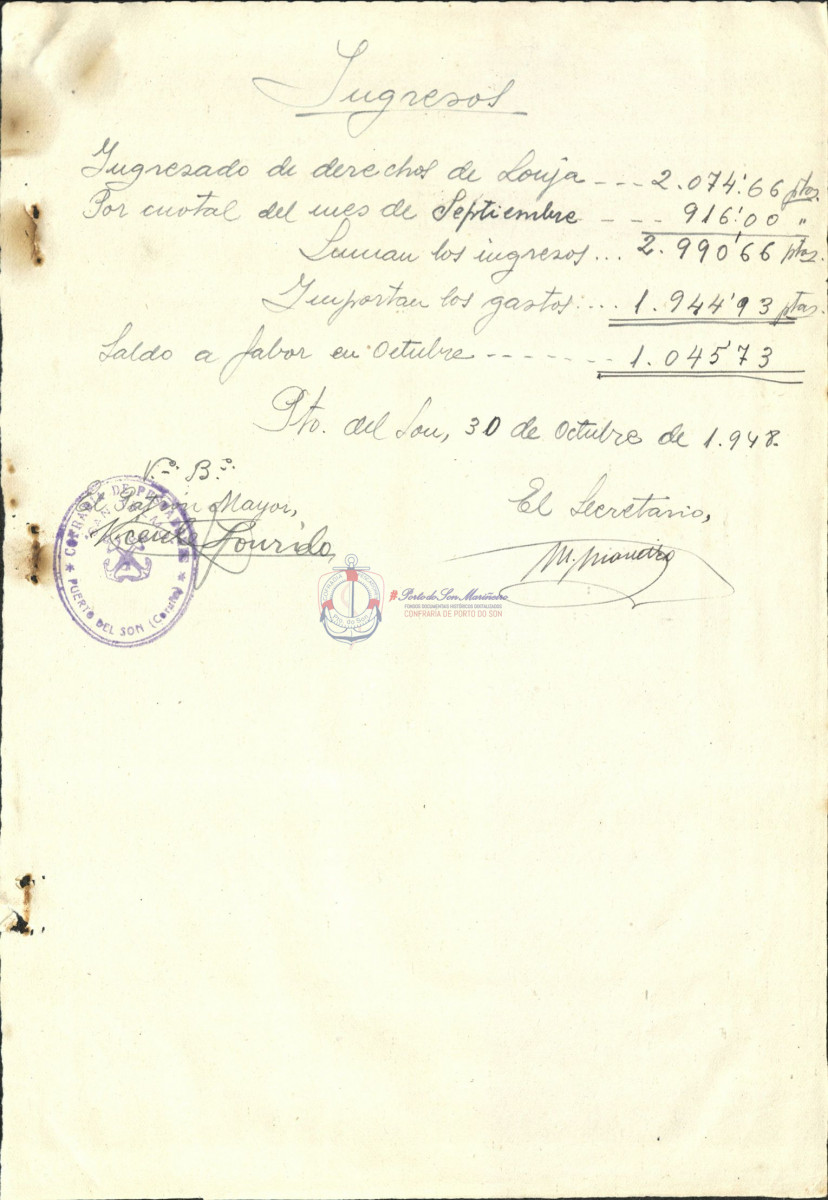 Ingresos
Ingresado de derechos de Lonja --- 2.074'66 ptas.
Por cuotas del mes de Septiembre --- 916'00 "
Suman los ingresos... 2.990'66 ptas.
Importan los gastos.... 1.944'93 ptas.
Saldo a fabor en Octubre ------- 1.045'73
Pto. del Son, 30 de Octubre de 1.948.
Vº. Bº.
El Patrón Mayor,
Vicente Lourido
El Secretario,
COFRADIA DE
PUERTO DEL SON (Coruña)
#Porto do Son Mariñeiro
FONDOS DOCUMENTAIS HISTÓRICOS DIXITALIZADOS
CONFRARÍA DE PORTO DO SON